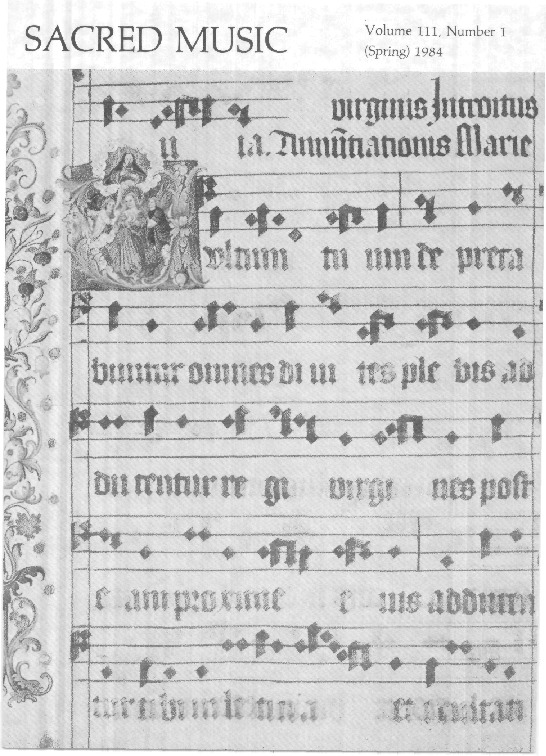 SACRED MUSIC
Volume 111, Number 1
(Spring) 1984
virginis Introitus
ia. Annūtiationis Marie
Vultum tu um de preca
buntur omnes di ui tes ple bis ad
du centur re gi virgi nes post
e am pro xime e ius adducen
tur